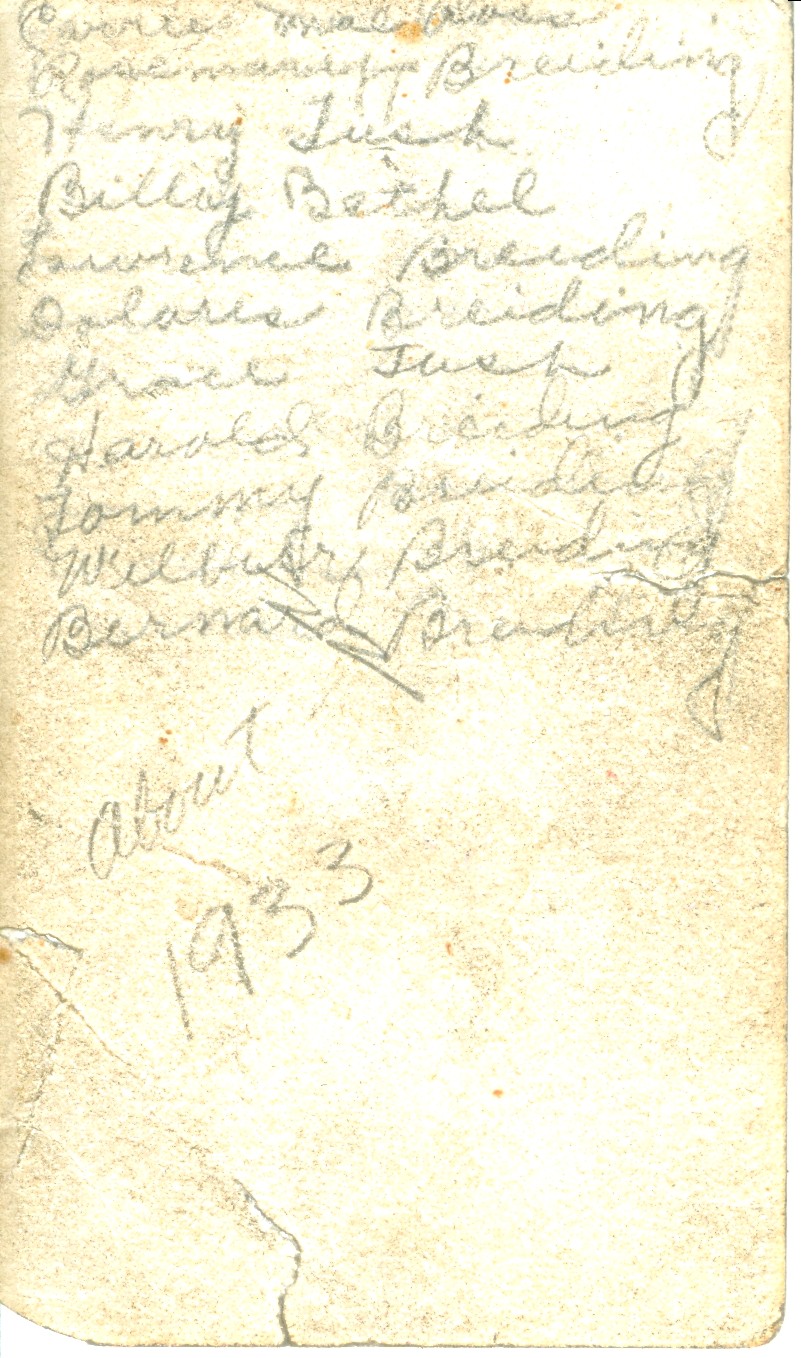 Carrie Mae Ross
Rosemary Breiding
Henry Tush
Billy Bethel
Lawrence Breiding
Dolores Breiding
Grace Tush
Harold Breiding
Tommy Breiding
Wilbur Breiding
Bernard Breiding
About
1933